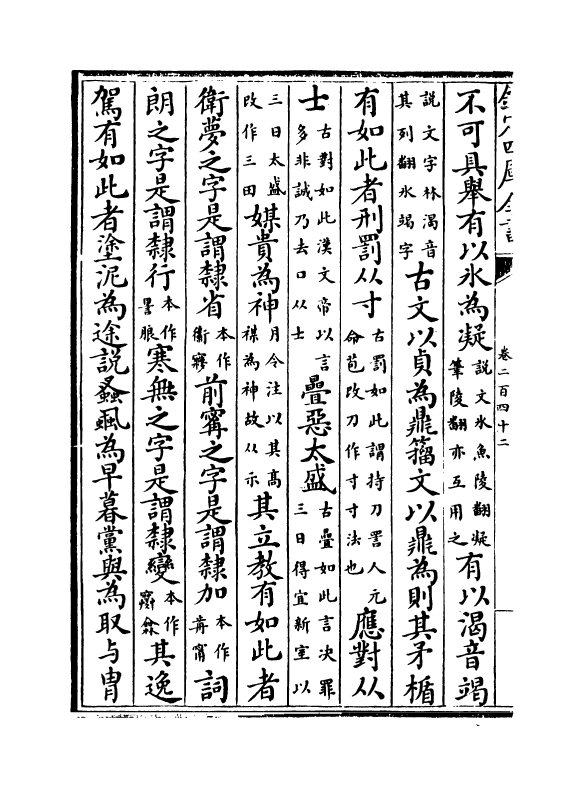 欽定四庫全書
卷二百四十二
不可具舉有以氷為凝說文氷魚陵翻凝筆陵翻亦互用之有以渴音竭
說文字林渴音其列翻氷竭字古文以貞為鼎籀文以鼎為則其矛楯
有如此者刑罰从寸古罰如此謂持刀詈人元命苞改刀作寸寸法也應對从
士古對如此漢文帝以言多非誠乃去口从士疊惡太盛古疊如此言决罪三日得宜新室以
三日太盛改作三田媒貴為神月令注以其髙禖為神故从示其立教有如此者
衛夢之字是謂隸省本作衞㝱前寗之字是謂隸加本作歬甯詞
朗之字是謂隸行本作䛐朖寒無之字是謂隸變本作𡫾𣠮其逸
駕有如此者塗泥為途說蝨颩為早暮黨與為取与冑